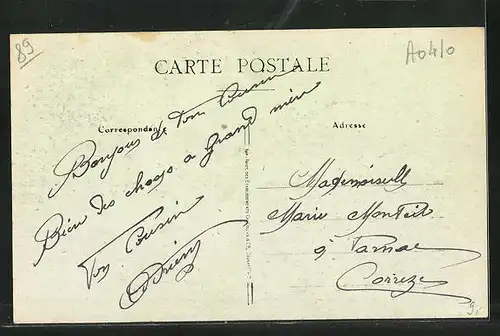 89
A0410
CARTE POSTALE
Correspondance
Adresse
Bonjour de Ton Cousin
Bien des choses a Grand mère
Ton Cousin
Mademoiselle
Marie Monteil
à Tarnac
Corrèze